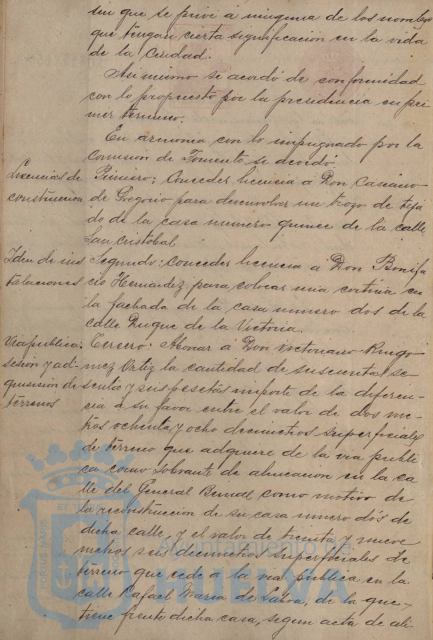 sin que se prive á ninguna de los nombres
que tengan cierta significación en la vida
de la Ciudad.
Asi mismo se acordó de conformidad
con lo propuesto por la presidencia en pri
mer término.
En armonia con lo impugnado por la
Comisión de Fomento se acordó
Licencias de construcion
Primero: Conceder licencia á Don Casiano
de Gregorio para desenvolver un trozo de teja
do de la casa numero quince de la calle
San Cristobal
Idem de ins talaciones
Segundo: Conceder licencia á Don Bonifa
cio Hernandez para colocar una cortina en
la fachada de la casa numero dos de la
calle Duque de la Victoria.
Via publica: sesión y ad- quisición de terrenos
Tercero: Abonar á Don Victoriano
mez Ortiz la cantidad de doscientas se
senta y seis pesetas importe de la diferen-
cia á su favor entre el valor de dos me-
tros ochenta y ocho decimetros superficiales
de terreno que adquiere de la via publi
ca como sobrante de alineacion en la ca
lle del General Bernal como motivo de
la reconstruccion de su casa numero dos de
dicha calle, y el valor de treinta y nueve
metros seis decimetros superficiales de
terreno que cede á la via publica en la
calle Rafael Maria de Labra, de la que
tiene frente dicha casa, segun acta de ali
Ayuntamiento de
HUELVA